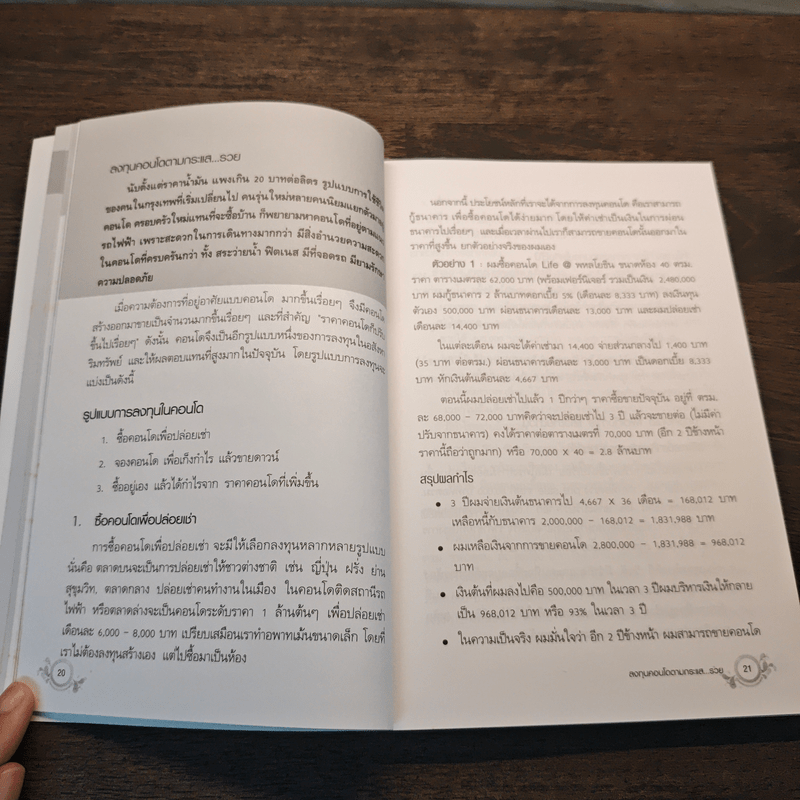 ลงทุนคอนโดตามกระแส...รวย
นับตั้งแต่ราคาน้ำมัน แพงเกิน 20 บาทต่อลิตร รูปแบบการใช้ชีวิต
ของคนในกรุงเทพที่เริ่มเปลี่ยนไป คนรุ่นใหม่หลายคนนิยมแยกตัวมาอยู่
คอนโด ครอบครัวใหม่แทนที่จะซื้อบ้าน ก็พยายามหาคอนโดที่อยู่ตามแนว
รถไฟฟ้า เพราะสะดวกในการเดินทางมากกว่า มีสิ่งอำนวยความสะดวก
ในคอนโดที่ครบครันกว่า ทั้ง สระว่ายน้ำ ฟิตเนส มีที่จอดรถ มียามรักษา
ความปลอดภัย
เมื่อความต้องการที่อยู่อาศัยแบบคอนโด มากขึ้นเรื่อยๆ จึงมีคอนโด
สร้างออกมาขายเป็นจำนวนมากขึ้นเรื่อยๆ และที่สำคัญ "ราคาคอนโดก็ปรับ
ขึ้นไปเรื่อยๆ" ดังนั้น คอนโดจึงเป็นอีกรูปแบบหนึ่งของการลงทุนในอสังหา
ริมทรัพย์ และให้ผลตอบแทนที่สูงมากในปัจจุบัน โดยรูปแบบการลงทุนจะ
แบ่งเป็นดังนี้
รูปแบบการลงทุนในคอนโด
1. ซื้อคอนโดเพื่อปล่อยเช่า
2. จองคอนโด เพื่อเก็งกำไร แล้วขายดาวน์
3. ซื้ออยู่เอง แล้วได้กำไรจาก ราคาคอนโดที่เพิ่มขึ้น
1. ซื้อคอนโดเพื่อปล่อยเช่า
การซื้อคอนโดเพื่อปล่อยเช่า จะมีให้เลือกลงทุนหลากหลายรูปแบบ
นั่นคือ ตลาดบนจะเป็นการปล่อยเช่าให้ชาวต่างชาติ เช่น ญี่ปุ่น ฝรั่ง ย่าน
สุขุมวิท, ตลาดกลาง ปล่อยเช่าคนทำงานในเมือง ในคอนโดติดสถานีรถ
ไฟฟ้า หรือตลาดล่างจะเป็นคอนโดระดับราคา 1 ล้านต้นๆ เพื่อปล่อยเช่า
เดือนละ 6,000 - 8,000 บาท เปรียบเสมือนเราทำอพาทเม้นขนาดเล็ก โดยที่
เราไม่ต้องลงทุนสร้างเอง แต่ไปซื้อมาเป็นห้อง
20
นอกจากนี้ ประโยชน์หลักที่เราจะได้จากการลงทุนคอนโด คือเราสามารถ
กู้ธนาคาร เพื่อซื้อคอนโดได้ง่ายมาก โดยให้ค่าเช่าเป็นเงินในการผ่อน
ธนาคารไปเรื่อยๆ และเมื่อเวลาผ่านไปเราก็สามารถขายคอนโดนั้นออกมาใน
ราคาที่สูงขึ้น ยกตัวอย่างจริงของผมเอง
ตัวอย่าง 1 : ผมซื้อคอนโด Life @ พหลโยธิน ขนาดห้อง 40 ตรม.
ราคา ตารางเมตรละ 62,000 บาท (พร้อมเฟอร์นิเจอร์ รวมเป็นเงิน 2,480,000
บาท ผมกู้ธนาคาร 2 ล้านบาทดอกเบี้ย 5% (เดือนละ 8,333 บาท) ลงเงินทุน
ตัวเอง 500,000 บาท ผ่อนธนาคารเดือนละ 13,000 บาท และผมปล่อยเช่า
เดือนละ 14,400 บาท
ในแต่ละเดือน ผมจะได้ค่าเช่ามา 14,400 จ่ายส่วนกลางไป 1,400 บาท
(35 บาท ต่อตรม.) ผ่อนธนาคารเดือนละ 13,000 บาท เป็นดอกเบี้ย 8,333
บาท หักเงินต้นเดือนละ 4,667 บาท
ตอนนี้ผมปล่อยเช่าไปแล้ว 1 ปีกว่าๆ ราคาซื้อขายปัจจุบัน อยู่ที่ ตรม.
ละ 68,000 - 72,000 บาทคิดว่าจะปล่อยเช่าไป 3 ปี แล้วจะขายต่อ (ไม่มีค่า
ปรับจากธนาคาร) คงได้ราคาต่อตารางเมตรที่ 70,000 บาท (อีก 2 ปีข้างหน้า
ราคานี้ถือว่าถูกมาก) หรือ 70,000 X 40 = 2.8 ล้านบาท
สรุปผลกำไร
• 3 ปีผมจ่ายเงินต้นธนาคารไป 4,667 X 36 เดือน = 168,012 บาท
เหลือหนี้กับธนาคาร 2,000,000 - 168,012 = 1,831,988 บาท
• ผมเหลือเงินจากการขายคอนโด 2,800,000 - 1,831,988 = 968,012
บาท
• เงินต้นที่ผมลงไปคือ 500,000 บาท ในเวลา 3 ปีผมบริหารเงินให้กลาย
เป็น 968,012 บาท หรือ 93% ในเวลา 3 ปี
• ในความเป็นจริง ผมมั่นใจว่า อีก 2 ปีข้างหน้า ผมสามารถขายคอนโด
ลงทุนคอนโดตามกระแส...รวย 21